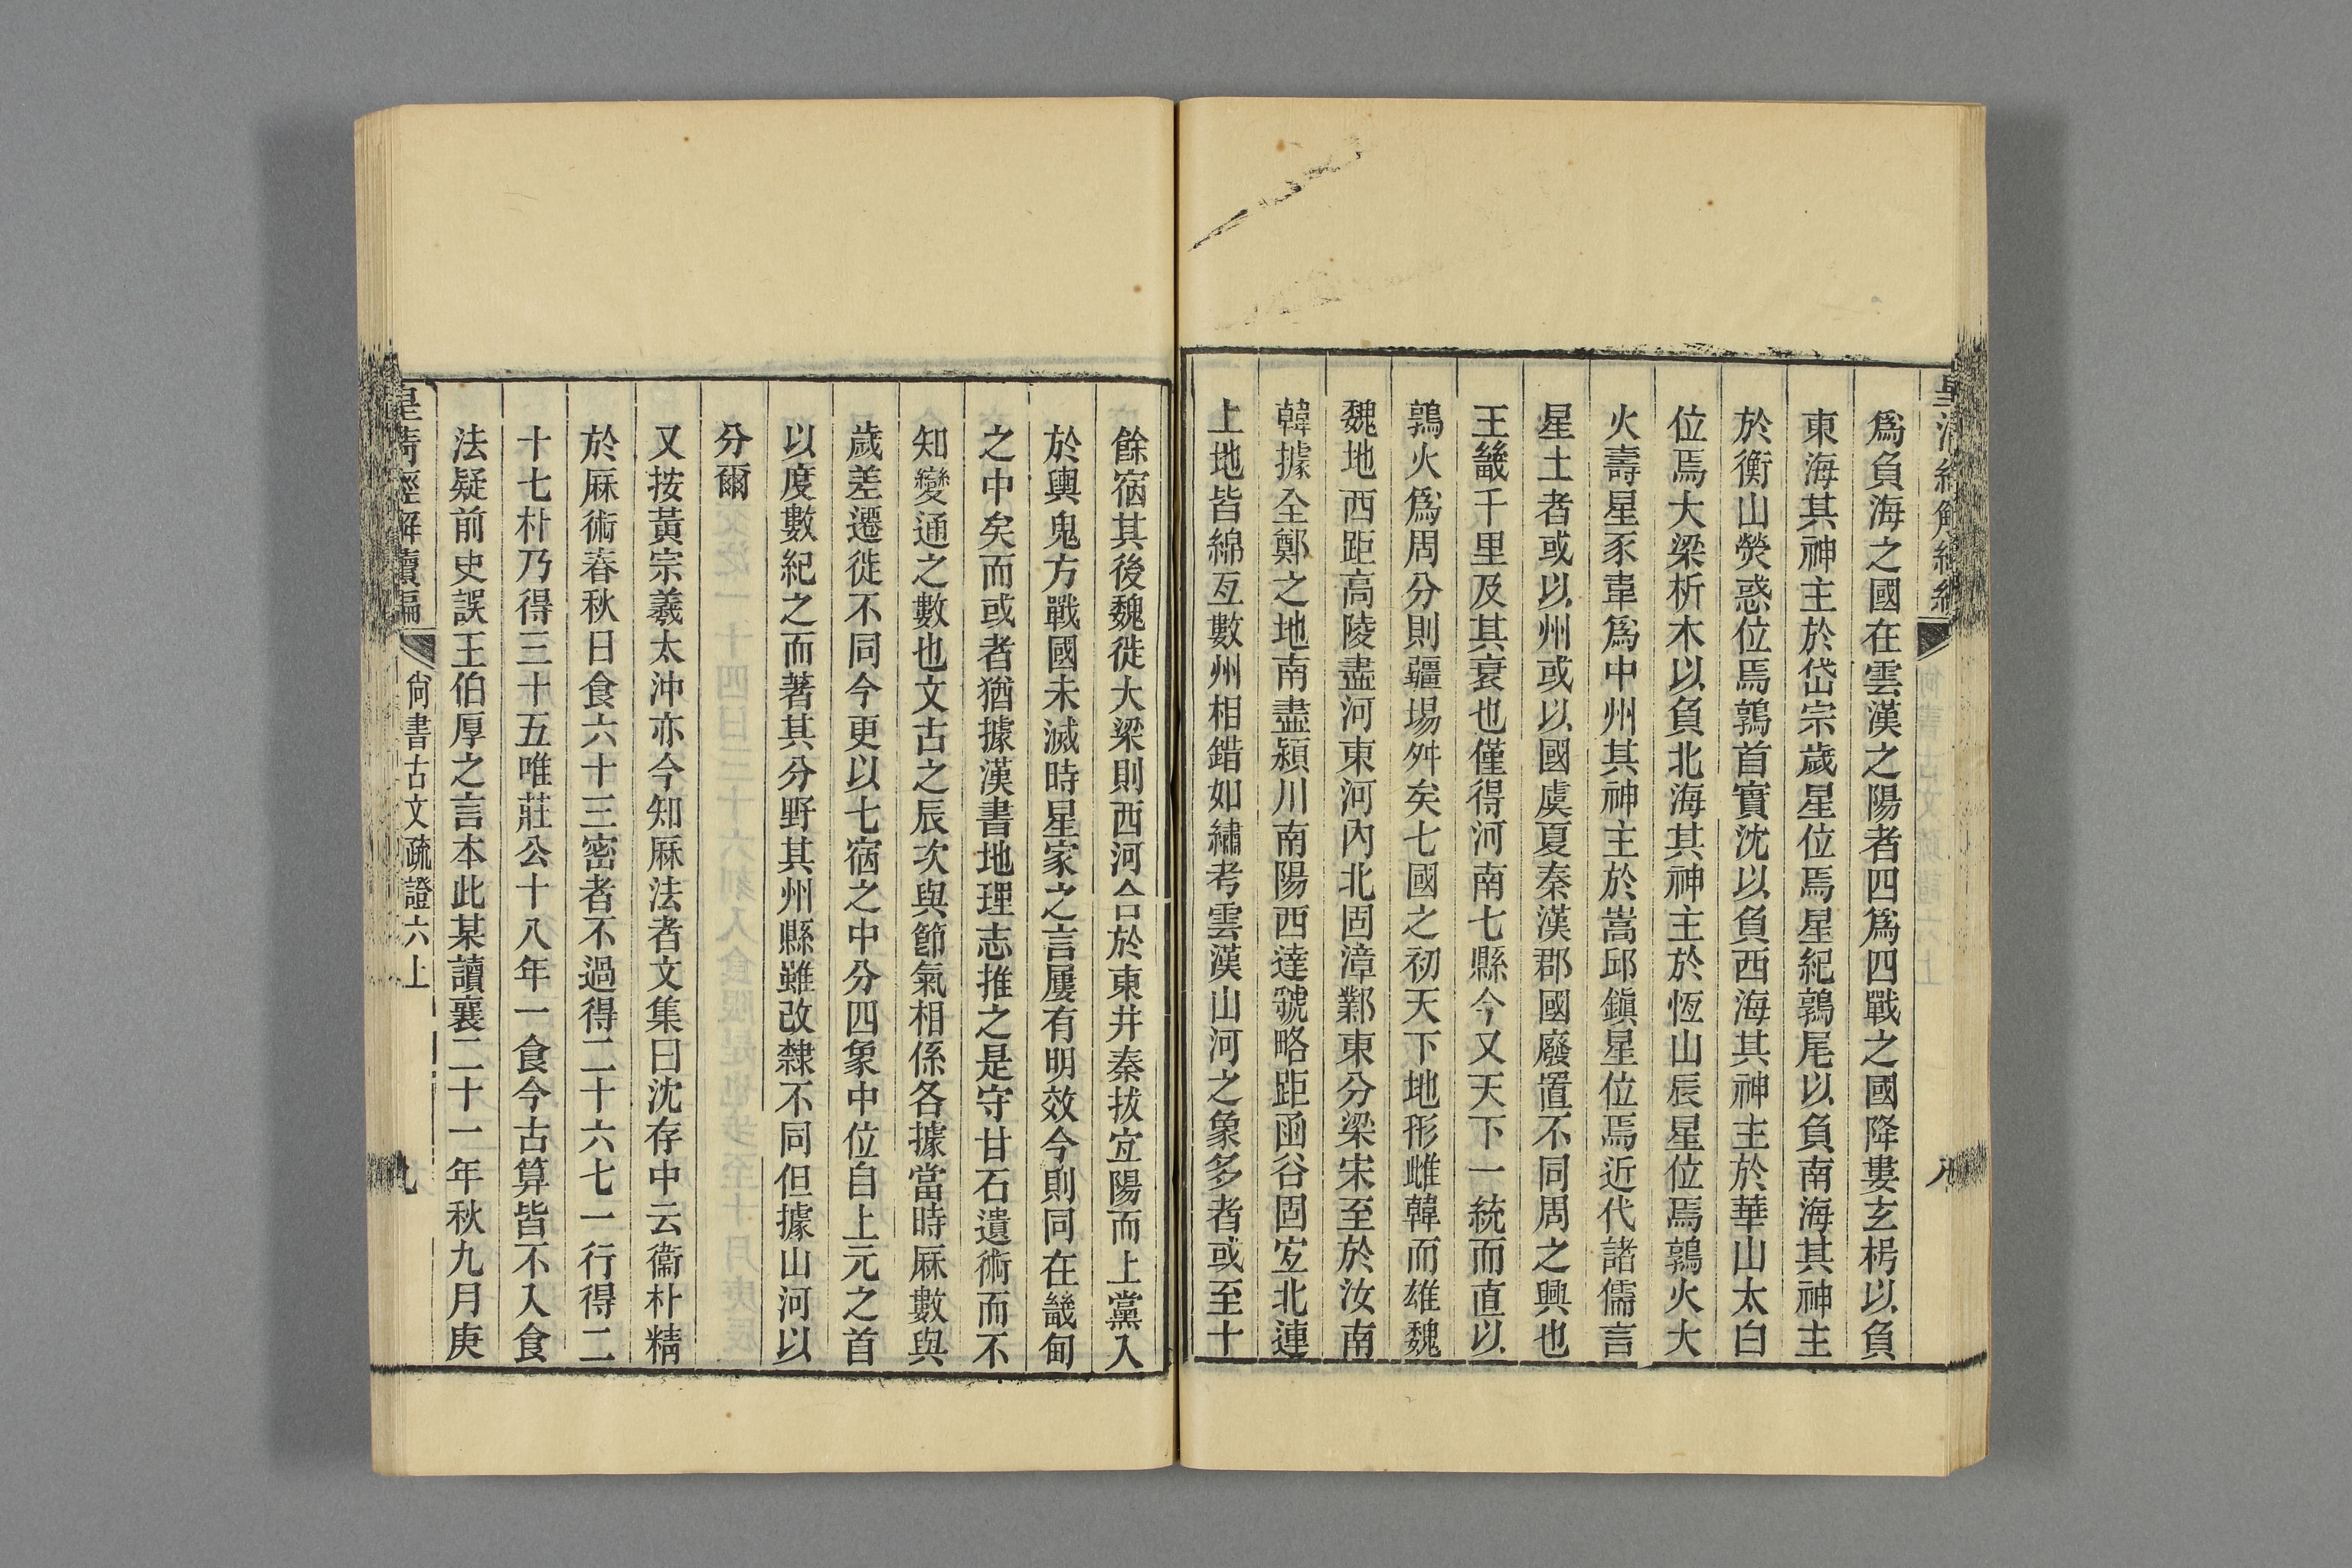 爲負海之國在雲漢之陽者四爲四戰之國降婁玄枵以負
東海其神主於岱宗歲星位焉星紀鶉尾以負南海其神主
於衡山熒惑位焉鶉首實沈以負西海其神主於華山太白
位焉大梁析木以負北海其神主於恆山辰星位焉鶉火大
火壽星豕韋爲中州其神主於嵩邱鎭星位焉近代諸儒言
星土者或以州或以國虞夏秦漢郡國廢置不同周之興也
王畿千里及其衰也僅得河南七縣今又天下一統而直以
鶉火爲周分則疆場舛矣七國之初天下地形雌韓而雄魏
魏地西距高陵盡河東河內北固漳鄴東分梁宋至於汝南
韓據全鄭之地南盡潁川南陽西達虢略距函谷固宜北連
上地皆綿亙數州相錯如繡考雲漢山河之象多者或至十
餘宿其後魏徙大梁則西河合於東井秦拔宜陽而上黨入
於輿鬼方戰國未滅時星家之言屢有明效今則同在畿甸
之中矣而或者猶據漢書地理志推之是守甘石遺術而不
知變通之數也文古之辰次與節氣相係各據當時厤數與
歲差遷徙不同今更以七宿之中分四象中位自上元之首
以度數紀之而著其分野其州縣雖改隸不同但據山河以
分爾
又按黃宗羲太沖亦今知厤法者文集曰沈存中云衞朴精
於厤術春秋日食六十三密者不過得二十六七一行得二
十七朴乃得三十五唯莊公十八年一食今古算皆不入食
法疑前史誤王伯厚之言本此某讀襄二十一年秋九月庚
皇淸經解續編
尙書古文疏證六上
九